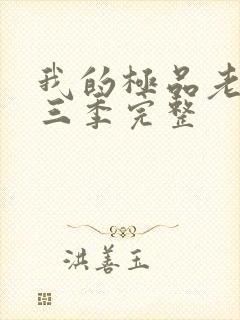 我的極品老
三季完整
洪善玉